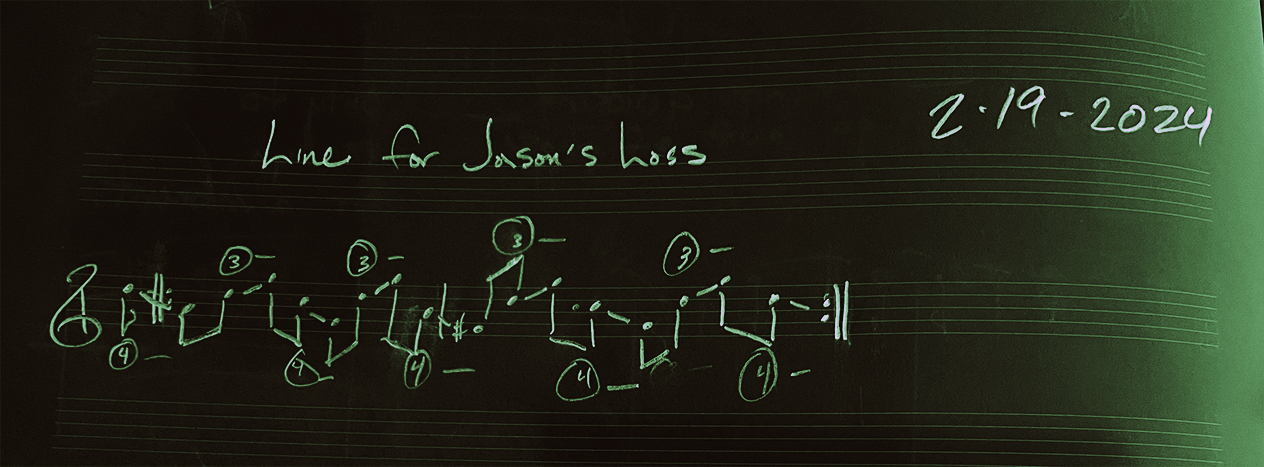 2·19-2024
Line for Jason's Loss
3 3 3 3
4 4 4 4 4